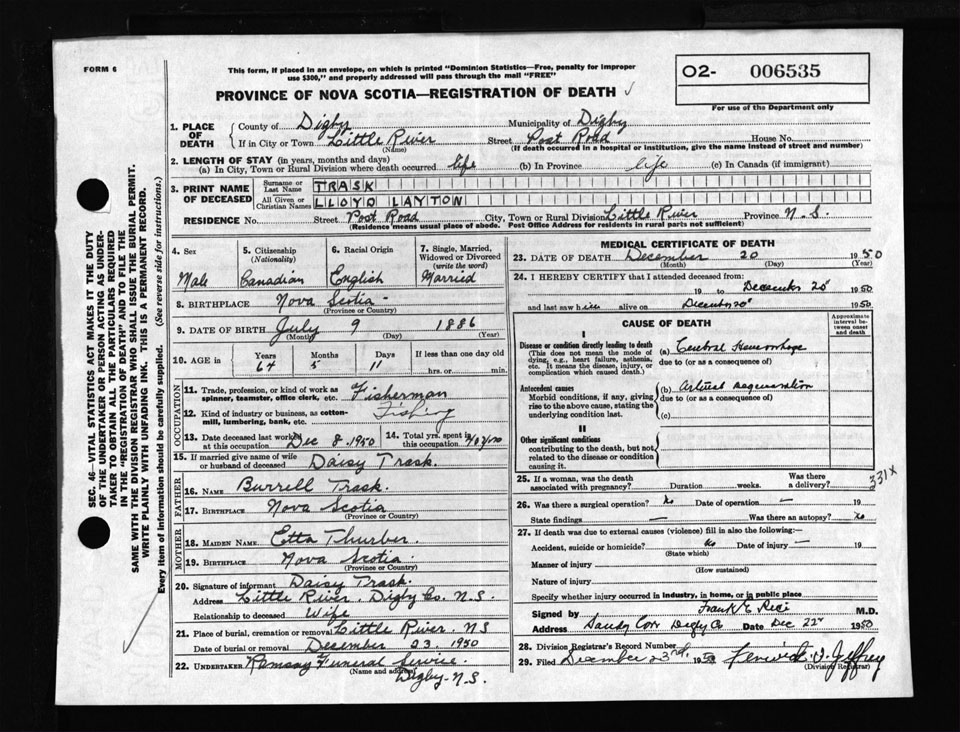 FORM 6
This form, if placed in an envelope, on which is printed "Dominion Statistics—Free, penalty for improper
use $300," and properly addressed will pass through the mail "FREE"
O2- 006535
For use of the Department only
PROVINCE OF NOVA SCOTIA—REGISTRATION OF DEATH
1. PLACE OF DEATH { County of Digby Municipality of Digby
If in City or Town Little River (Name) Street Post Road House No.
(If death occurred in a hospital or institution, give the name instead of street and number)
2. LENGTH OF STAY (in years, months and days)
(a) In City, Town or Rural Division where death occurred life (b) In Province life (c) In Canada (if immigrant)
3. PRINT NAME OF DECEASED { Surname or Last Name TRASK
All Given or Christian Names LLOYD LAYTON
RESIDENCE No. Street Post Road City, Town or Rural Division Little River Province N.S.
(Residence means usual place of abode. Post Office Address for residents in rural parts not sufficient)
4. Sex Male
5. Citizenship (Nationality) Canadian
6. Racial Origin English
7. Single, Married, Widowed or Divorced (write the word) Married
8. BIRTHPLACE Nova Scotia
(Province or Country)
9. DATE OF BIRTH July 9 1886
(Month) (Day) (Year)
10. AGE in Years Months Days If less than one day old
64 5 11 hrs. or min.
OCCUPATION
11. Trade, profession, or kind of work as
spinner, teamster, office clerk, etc. Fisherman
12. Kind of industry or business, as cotton-
mill, lumbering, bank, etc. Fishing
13. Date deceased last worked at this occupation Dec 8. 1950
14. Total yrs. spent in this occupation
15. If married give name of wife
or husband of deceased Daisy Trask.
FATHER
16. NAME Burrell Trask.
17. BIRTHPLACE Nova Scotia
(Province or Country)
MOTHER
18. MAIDEN NAME Etta Thurber.
19. BIRTHPLACE Nova Scotia.
(Province or Country)
20. Signature of informant Daisy Trask.
Address Little River. Digby Co. N.S.
Relationship to deceased Wife
21. Place of burial, cremation or removal Little River. NS
Date of burial or removal December 23. 1950
22. UNDERTAKER Ramsay Funeral Service.
(Name and address) Digby-N.S.
MEDICAL CERTIFICATE OF DEATH
23. DATE OF DEATH December 20 1950
(Month) (Day) (Year)
24. I HEREBY CERTIFY that I attended deceased from:
19 to December 20 1950
and last saw h alive on December 20 1950
CAUSE OF DEATH
Approximate interval between onset and death
I
Disease or condition directly leading to death
(This does not mean the mode of
dying, e.g., heart failure, asthenia,
etc. It means the disease, injury, or
complication which caused death.)
(a)
due to (or as a consequence of)
Antecedent causes
Morbid conditions, if any, giving
rise to the above cause, stating the
underlying condition last.
(b)
due to (or as a consequence of)
(c)
II
Other significant conditions
contributing to the death, but not
related to the disease or condition
causing it.
331x
25. If a woman, was the death
associated with pregnancy? Duration weeks. Was there a delivery?
26. Was there a surgical operation? No Date of operation — 19
State findings — Was there an autopsy? No
27. If death was due to external causes (violence) fill in also the following:—
Accident, suicide or homicide? No Date of injury — 19
(State which)
Manner of injury
(How sustained)
Nature of injury
Specify whether injury occurred in industry, in home, or in public place
Signed by Frank E M.D.
Address Sandy Digby Co Date Dec 22 1950
28. Division Registrar's Record Number
29. Filed December 23rd. 1950 Jeffrey
(Division Registrar)
SEC. 46—VITAL STATISTICS ACT MAKES IT THE DUTY
OF THE UNDERTAKER OR PERSON ACTING AS UNDER-
TAKER TO OBTAIN ALL THE PARTICULARS REQUIRED
IN THE "REGISTRATION OF DEATH" AND TO FILE THE
SAME WITH THE DIVISION REGISTRAR WHO SHALL ISSUE THE BURIAL PERMIT.
WRITE PLAINLY WITH UNFADING INK. THIS IS A PERMANENT RECORD.
Every item of information should be carefully supplied. (See reverse side for instructions.)